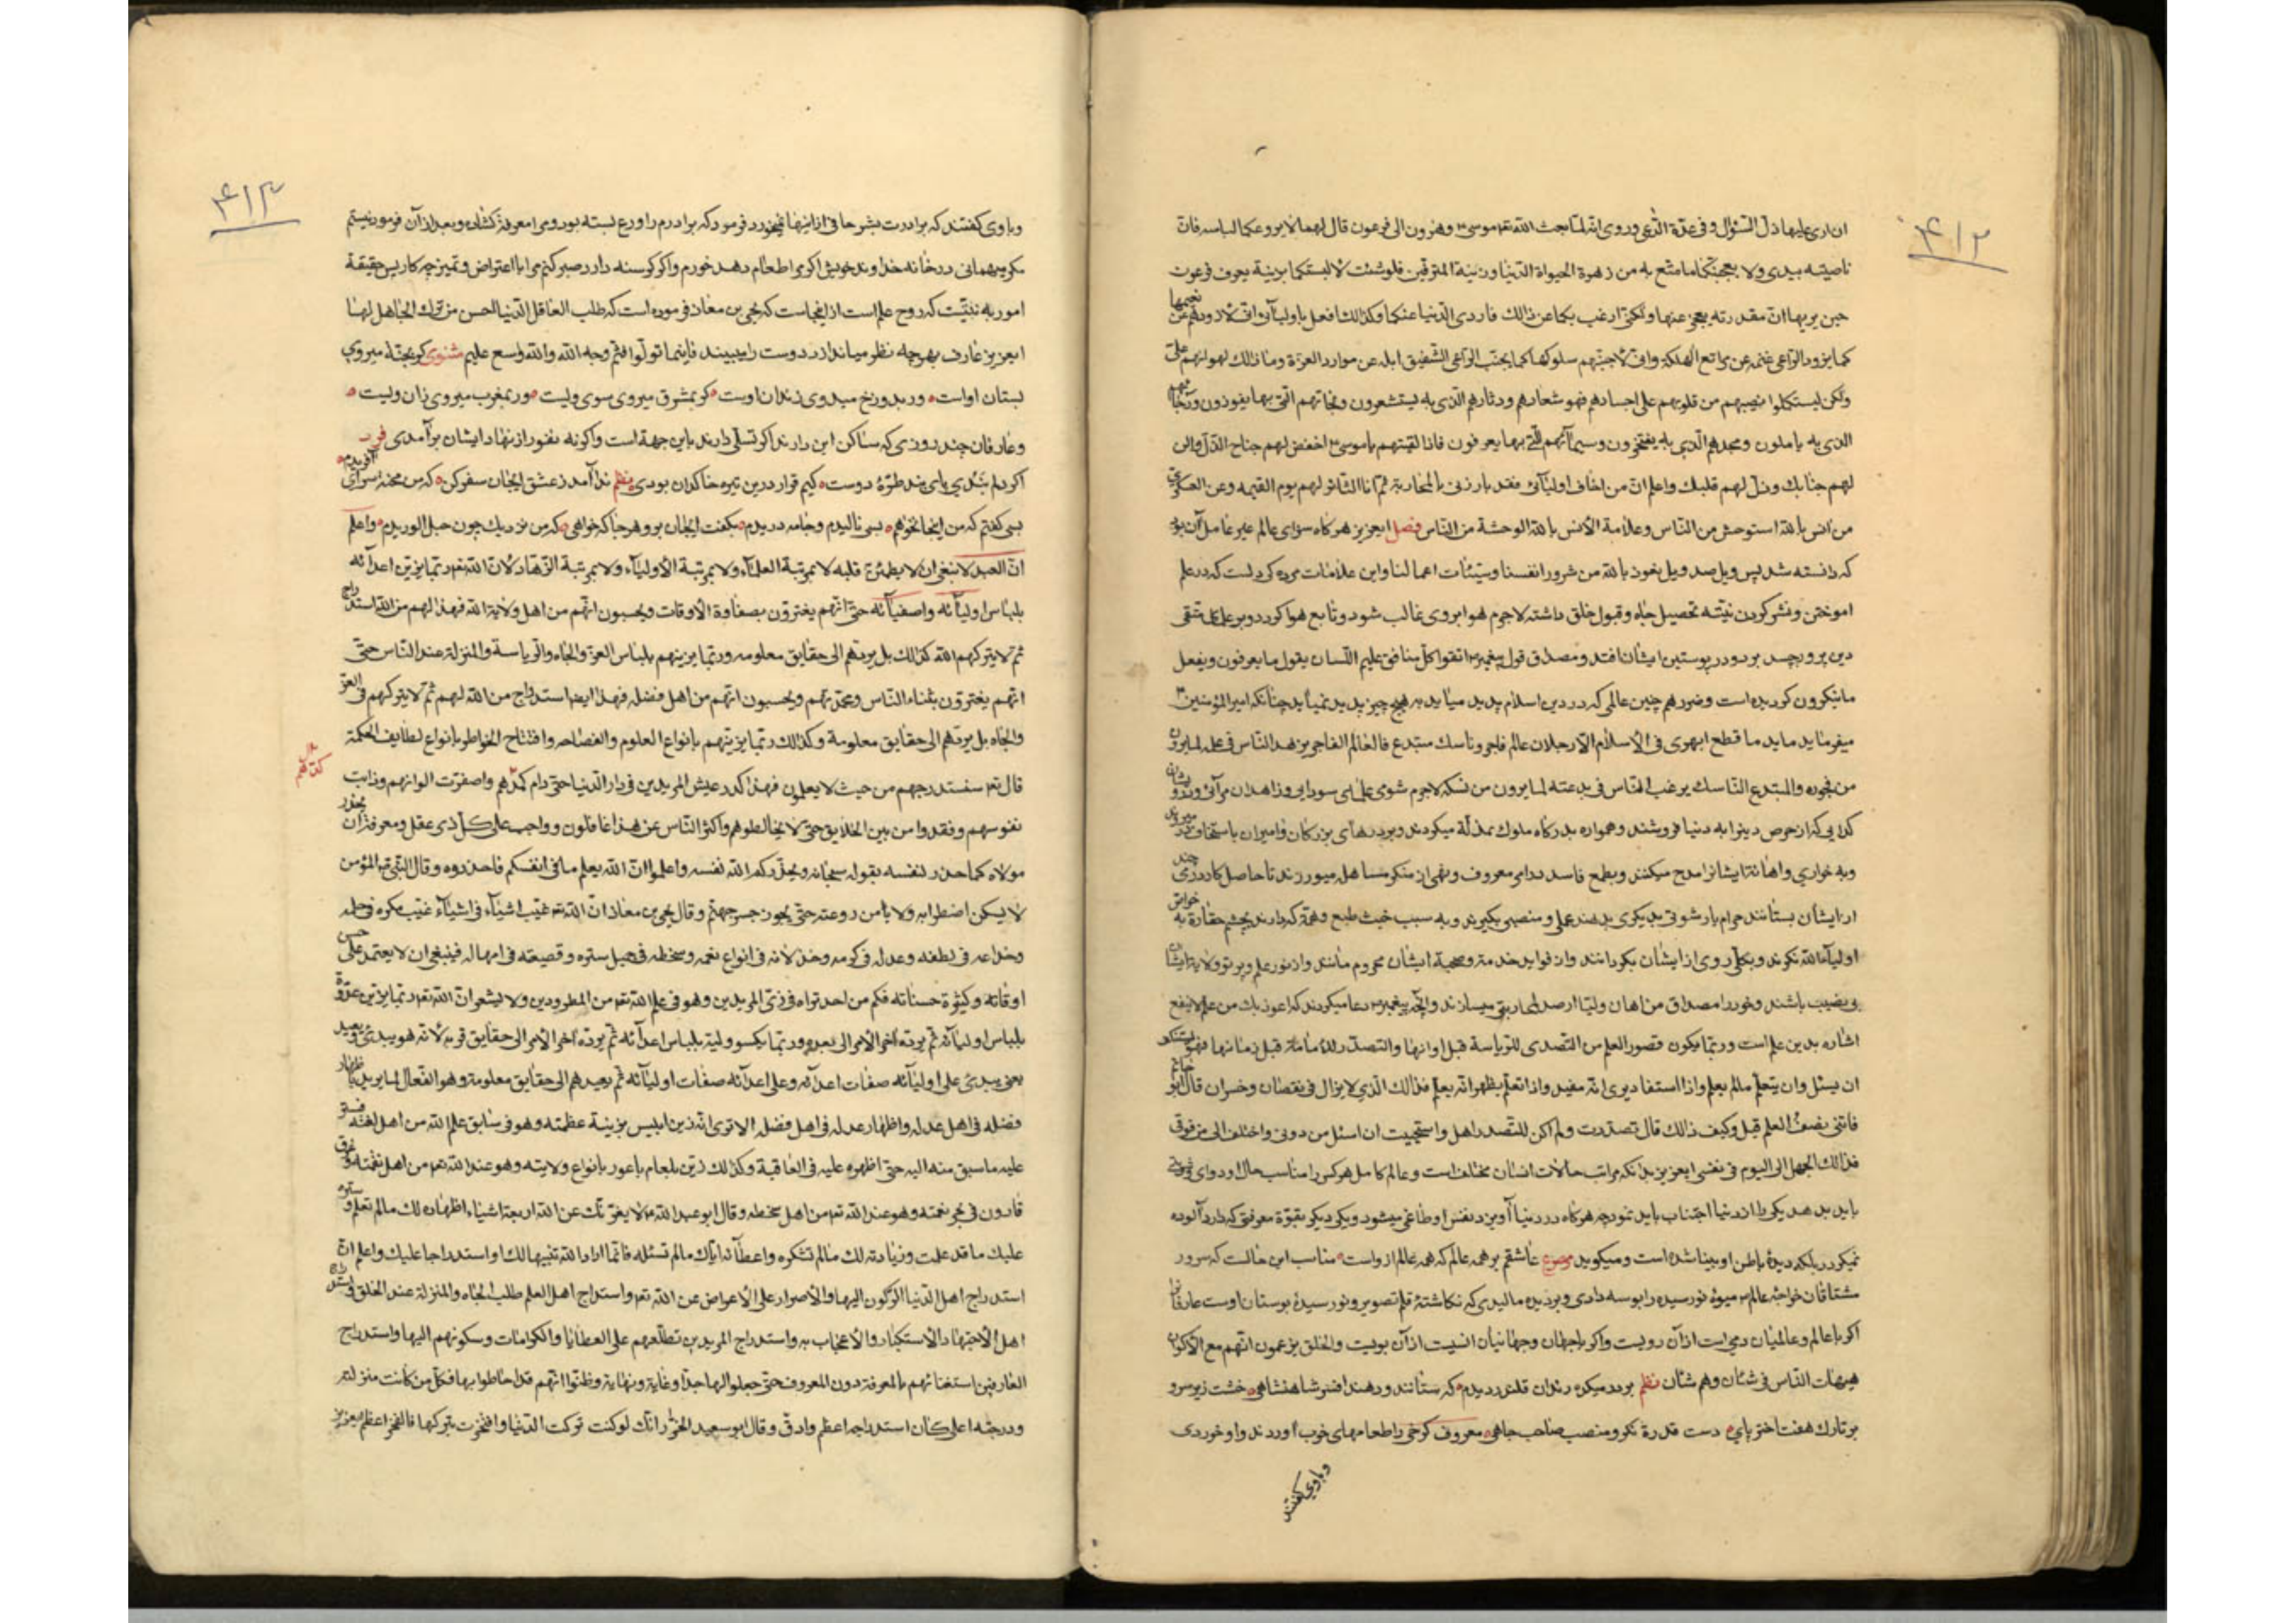 ۴۱۲
ان اری علیها ذلّ السّؤال وفی عدّة الدّاعی وروی انّه لمّا بعث اللّه تعم موسی وهرون الی فرعون قال لهما لا یروعکما لباسه فانّ
ناصیته بیدی ولا یعجبنّکما ما متّع به من زهرة الحیواة الدّنیا وزینة المترفین فلو شئت لالبستکما بزینة یعرف فرعون
حین یریها انّ مقدرته یعجز عنها ولکنّی ارغب بکما عن ذالک فازدی الدّنیا عنکما وکذالک افعل باولیآئی انّی لاذودهم عن نعیمها
کما یزود الرّاعی غنمه عن مراتع الهلکة وانّی لاجنّبهم سلوکها کما یجنّب الرّاعی الشّفیق ابله عن موارد العزة وما ذالک لهوانهم علیّ
ولکن لیستکملوا نصیبهم من قلوبهم علی اجسادهم فهو شعارهم ودثارهم الذی به یستشعرون ونجاتهم الّتی بها یفوزون ورجآئهم
الذی به یاملون ومجدهم الّذی به یفتخرون وسیمآئهم الّتی بها یعرفون فاذا لقیتهم یا موسی اخفض لهم جناح الذّلّ والن
لهم جنابک وذلّ لهم قلبک واعلم انّ من اخاف اولیآئی فقد بارزنی بالمحاربة ثمّ انا الثائر لهم یوم القیمه وعن العسکری
من انس باللّه استوحش من النّاس وعلامة الأنس باللّه الوحشة من النّاس فصل ایعزیز هرکاه سزای عالم غیر عامل آن بود
که دانسته شد پس ویل صد ویل نعوذ باللّه من شرور انفسنا وسیّئات اعمالنا واین علامات مرده کی دلست که در علم
اموختن ونشر کردن نیّته تحصیل جاه وقبول خلق داشته لاجرم هوا بروی غالب شود وتابع هوا کردد وبر علمای متّقی
دین پرور حسد برد ودر پوستین ایشان افتد ومصداق قول پیغمبر اتقوا کلّ منافق علیم اللّسان یقول ما یعرفون ویفعل
ما ینکرون کردیده است وضررهم چنین عالمی که در دین اسلام پدید میاید به هیچ چیز پدید نمیاید چنانکه امیر المؤمنین
میفرماید ماید ما قطع ظهری فی الاسلام الّا رجلان عالم فاجر وناسک مبتدع فالعالم الفاجر یزهد النّاس فی علمه لما یرون
من فجوره والمبتدع النّاسک یرغب النّاس فی بدعته لما یرون من نسکه لاجرم شومی علمای سودایی وزاهدان مرآئی ودرویشان
کدایی که از حرص دینرا به دنیا فروشند وهمواره بدرکاه ملوک بمذلّة میکردند وبر درهای بزرکان وامیران باستخاف میروند
وبه خواری واهانت ایشانرا مدح میکنند وبطمع فاسد در امر معروف ونهی از منکر مساهله میورزند تا حاصل کار درمی چند
از ایشان بستانند حرام یا رشوتی بدیکری بدهند عملی ومنصبی بکیرند وبه سبب خبث طبع وهمّتی که دارند بچشم حقارة به خواص
اولیآء اللّه نکرند وبکلّی روی از ایشان بکردانند واز فواید خدمت وصحبة ایشان محروم مانند واز نور علم وپرتو ولایت ایشان
بی نصیب باشند وخود را مصداق من اهان ولیّا ارصد لمحاربتی میسازند وآنچه پیغمبر دعا میکردند که اعوذ بک من علم لا ینفع
اشاره بدین علم است وربّما یکون قصور العلم من التصدی للرّیاسة قبل اوانها والتصدّر للامامة قبل زمانها فهو یستنکف
ان یسئل وان یتعلّم مالم یعلم واذا استفاد یری انّه مفید واذا تعلّم یظهر انّه یعلّم فذالک الّذی لا یزال فی نقصان وخسران قال ابو حاتم
فاتنی نصف العلم قیل وکیف ذالک قال تصدّرت ولم اکن للتصدر اهل واستحییت ان اسئل من دونی واختلف الی من فوقی
فذالک الجهل الی الیوم فی نفسی ایعزیز بدانکه مراتب حالات انسان مختلف است وعالم کامل هرکس را مناسب حال او دوای
باید بدهد یکی را از دنیا اجتناب باید نمود چه هرکاه در دنیا آویزد نفس او طاغی میشود ویکی دیکر بقوّة معرفتی که دارد آلوده
نمیکردد بلکه دیدهٔ باطن او بینا شده است ومیکوید مصرع عاشقم بر همه عالم که همه عالم ازوست مناسب این حالت که سرور
مشتاقان خواجهٔ عالم میوهٔ نورسیده را بوسه دادی وبر دیده مالیدی که نکاشتهٔ قلم تصویر ونورسیدهٔ بوستان اوست عارفانرا
اکر با عالم وعالمیان رمی است از آن رویست واکر با جهان وجهانیان انسیت از آن بویست والخلق یزعمون انّهم مع الاکوان
هیهات النّاس فی شئان وهم شئان نظم بر در میکده رندان قلندر دیدم که ستانند ودهند افسر شاهنشاهی خشت زیر سر و
بر تارک هفت اختر پای دست قدرة نکر ومنصب صاحب جاهی معروف کرخی را طعامهای خوب آوردند واو خوردی
وباوی کفتند
۴۱۳
وباوی کفتند که برادرت بشر حافی از اینها نمیخورد فرمود که برادرم را ورع بسته بود ومرا معرفة کشاده وبعد از آن فرمود نیستم
مکر میهمانی در خانه خداوند خویش اکر مرا طعام دهد خورم واکر کرسنه دارد صبر کنم مرا با اعتراض وتمیز چه کار پس حقیقة
امور به نیّتست که روح علم است از اینجاست که یحیی بن معاذ فرموده است که طلب العاقل الدّنیا الحسن من ترک الجاهل لها
ایعزیز عارف بهرچه نظر میاندازد دوست را میبیند فاینما تولّوا فثمّ وجه اللّه واللّه واسع علیم مثنوی کر بجنّة میروی
بستان اواست ور بدوزخ میدوی زندان اوست کر بمشرق میروی سوی ویست ور بمغرب میروی زان ویست
وعارفان چند روزی که ساکن این دارند اکر تسلّی دارند باین جهة است واکرنه نفور از نهاد ایشان بر آمدی فرد
اکر دلم نشدی پای بند طرّهٔ دوست کیم قرار درین تیره خاکدان بودی نظم ندا آمد ز عشق ایجان سفر کن که من محنه سرائی آفریدم
بسی کفتم که من اینجا نخواهم بسی نالیدم وجامه دریدم بکفت ایجان برو هرجا که خواهی که من نزدیک چون حبل الوریدم واعلم
انّ العبد لا ینبغی ان لا یطمئنّ قلبه لا بمرتبة العلمآء ولا بمرتبة الأولیآء ولا بمرتبة الزّهاد لانّ اللّه تعم ربّما یزیّن اعدآئه
بلباس اولیآئه واصفیآئه حتّی انّهم یغترّون بصفاوة الأوقات ویحسبون انّهم من اهل ولایة اللّه فهذا لهم من اللّه استدراج
ثم لا یترکهم اللّه کذالک بل یردّهم الی حقایق معلومه وربّما یزیّنهم بلباس العزّ والجاه والرّیاسة والمنزلة عند النّاس حتّی
انّهم یغترّون بثناء النّاس ومحمّدتهم ویحسبون انّهم من اهل فضله فهذا ایضا استدراج من اللّه لهم ثمّ لا یترکهم فی العزّ
والجاه بل یردّهم الی حقایق معلومة وکذالک ربّما یزیّنهم بأنواع العلوم والفصاحه وافتتاح الخواطر بأنواع لطایف الحکمة
قال تعم سنستدرجهم من حیث لا یعلمون فهذا کدر عیش المریدین فی دار الدّنیا حتّی دام کمدهم واصفرّت الوانهم وذابت
نفوسهم وفقدوا من بین الخلایق حتّی لا یخالطوهم واکثر النّاس عن هذا غافلون وواجب علی کلّ ذی عقل ومعرفة ان یحذر
مولاه کما حذر لنفسه بقوله سبحانه ویحذّرکم اللّه نفسه واعلموا انّ اللّه یعلم ما فی انفسکم فاحذروه وقال النّبی المؤمن
لا یسکن اضطرابه ولا یأمن روعته حتّی یجوز جسر جهنّم وقال یحیی بن معاذ انّ اللّه تعم غیّب اشیآء فی اشیآء غیّب مکره فی حلمه
وخداعه فی لطفه وعدله فی کرمه وخذلانه فی انواع نعمه وسخطه فی جمیل ستره وقصیعته فی امهاله فینبغی ان لا یعتمد علی حسن
اوقاته وکثرة حسناته فکم من احد تراه فی زیّ المریدین وهو فی علم اللّه تعم من المطرودین ولا یشعر انّ اللّه تعم ربّما یزیّن عدوّه
بلباس اولیآئه ثم یردّه آخر الأمر الی بعده وربّما یکسو ولیّه بلباس اعدآئه ثمّ یردّه آخر الأمر الی حقایق قربه لانّه هو یبدئ ویعید
یعنی یبدئ علی اولیآئه صفات اعدآئه وعلی اعدآئه صفات اولیآئه ثمّ یعیدهم الی حقایق معلومة وهو الفعّال لما یرید باظهار
فضله فی اهل عدله واظهار عدله فی اهل فضله الا تری انّه زیّن ابلیس بزینة عظمته وهو فی سابق علم اللّه من اهل لعنته
علیه ما سبق منه الیه حتّی اظهره علیه فی العاقبة وکذالک زیّن بلعام باعور بأنواع ولایته وهو عند اللّه تعم من اهل نقمته وغرق
قارون فی بحر نعمته وهو عند اللّه تعم من اهل سخطه وقال ابو عبد اللّه لا یغرّنّک عن اللّه اربعة اشیاء اظهاره لک مالم تعلم وستره
علیک ما قد علمت وزیادته لک مالم تشکره واعطآئه ایّاک مالم تسئله فانّما اراد اللّه تنبیها لک او استدراجا علیک واعلم انّ
استدراج اهل الدّنیا الرّکون الیها والأصرار علی الأعراض عن اللّه تعم واستدراج اهل العلم طلب الجاه والمنزلة عند الخلق واستدراج
اهل الأجتهاد الأستکبار والأعجاب به واستدراج المریدین تطلّعهم علی العطایا والکرامات وسکونهم الیها واستدراج
العارفین استغنائهم بالمعرفة دون المعروف حتّی جعلوا لها حدّا وغایة ونهایة وظنّوا انّهم قد احاطوا بها فکلّ من کانت منزلته
ودرجته اعلی کان استدراجه اعظم وادقّ وقال ابو سعید الخرّاز انّک لو کنت ترکت الدّنیا وافتخرت بترکها فالفخر اعظم